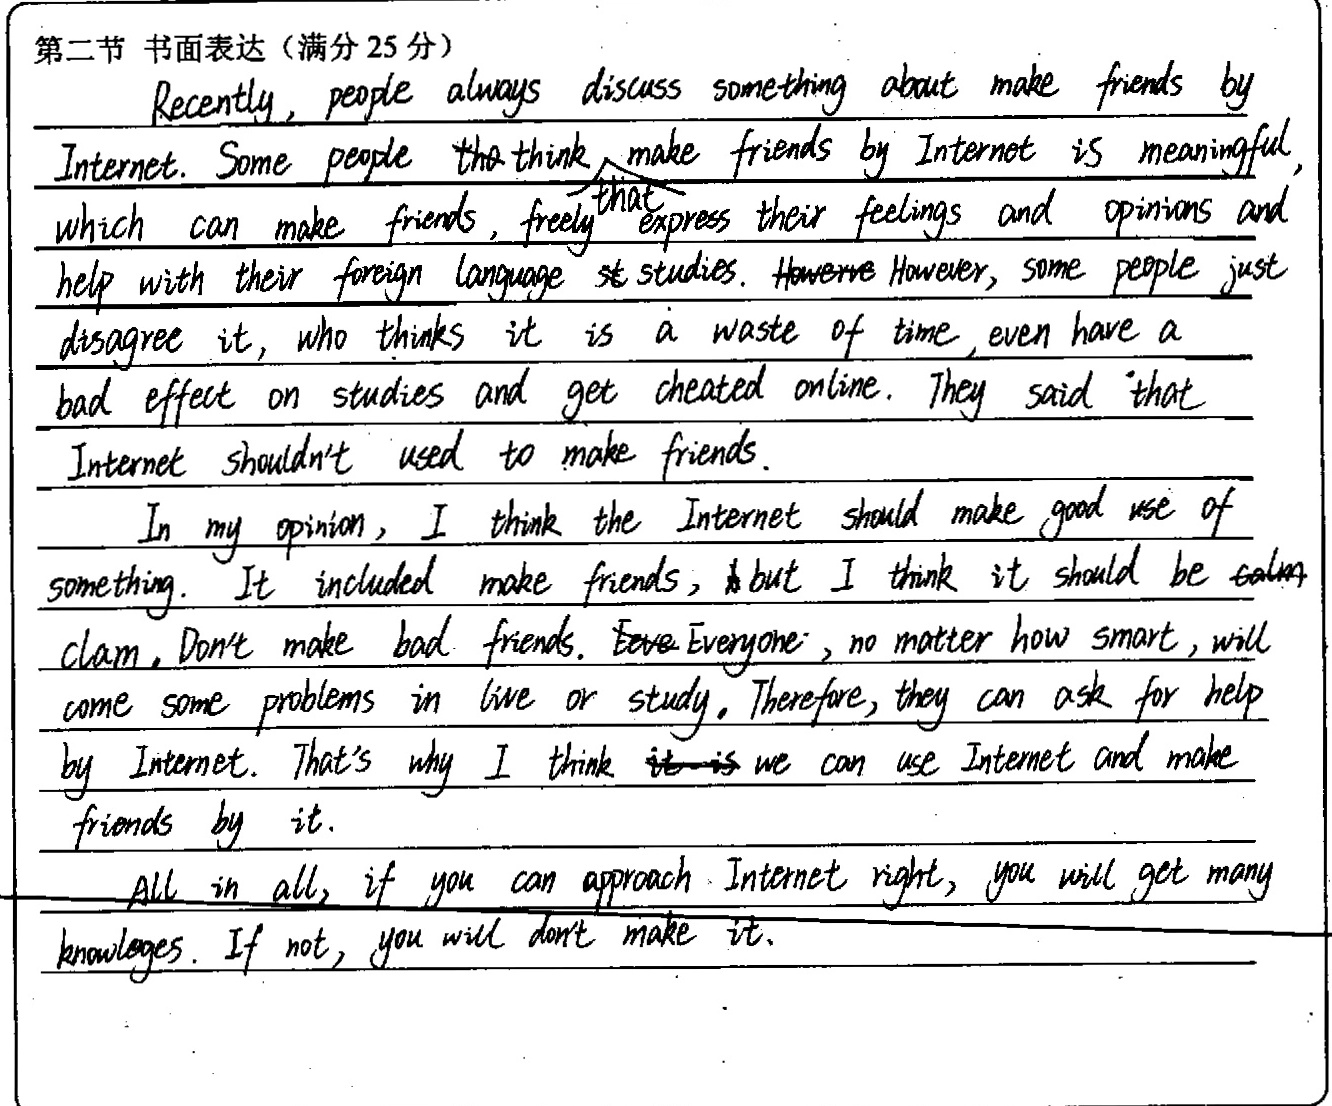 第二节 书面表达（满分 25 分）
Recently, people always discuss something about make friends by
Internet. Some people tho think that make friends by Internet is meaningful,
which can make friends, freely express their feelings and opinions and
help with their foreign language st studies. Howerve However, some people just
disagree it, who thinks it is a waste of time, even have a
bad effect on studies and get cheated online. They said that
Internet shouldn't used to make friends.
In my opinion, I think the Internet should make good use of
something. It included make friends, but I think it should be calm
clam. Don't make bad friends. Eeve Everyone, no matter how smart, will
come some problems in live or study. Therefore, they can ask for help
by Internet. That's why I think it is we can use Internet and make
friends by it.
All in all, if you can approach Internet right, you will get many
knowleges. If not, you will don't make it.